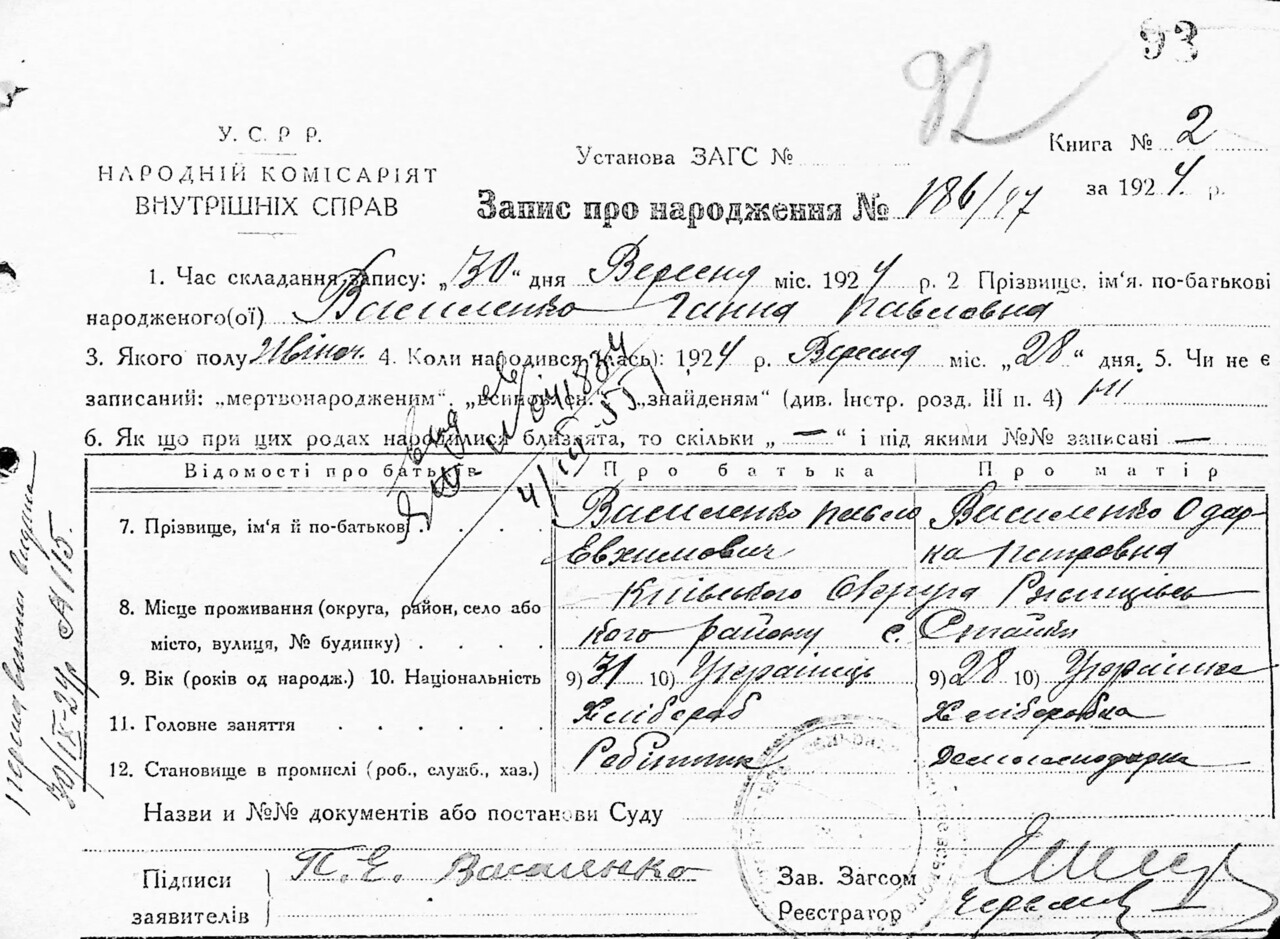 93
92
У. С. Р. Р.
НАРОДНІЙ КОМІСАРІЯТ
ВНУТРІШНІХ СПРАВ
Установа ЗАГС №
Книга № 2
за 1924 р.
Запис про народження № 186/97
1. Час складання запису: „30“ дня Вересня міс. 1924 р. 2 Прізвище, ім'я, по-батькові
народженого(ої) Василенко Ганна Павловна
3. Якого полу Жіноч. 4. Коли народився(лась): 1924 р. Вересня міс. „28“ дня. 5. Чи не є
записаний: „мертвонародженим“, „всиновлен.“ „знайденям“ (див. Інстр. розд. III п. 4) ні
6. Як що при цих родах народилися близнята, то скільки „—“ і під якими №№ записані —
Відомості про батьків Про батька Про матір
7. Прізвище, ім'я й по-батькові Василенко Павло Василенко Одар-
Евхимович ка Петровна
8. Місце проживання (округа, район, село або Київського Округа Ржищівсь
місто, вулиця, № будинку) кого району с. Стайки
9. Вік (років од народж.) 10. Національність 9) 31 10) Українець 9) 28 10) Українка
11. Головне заняття Хлібороб Хліборобка
12. Становище в промислі (роб., служб., хаз.) Робітник Домогосподарка
Назви и №№ документів або постанови Суду
Підписи
заявителів
П. Е. Василенко
Зав. Загсом
Реєстратор
30/IX-24р. № 115.
4/III-55